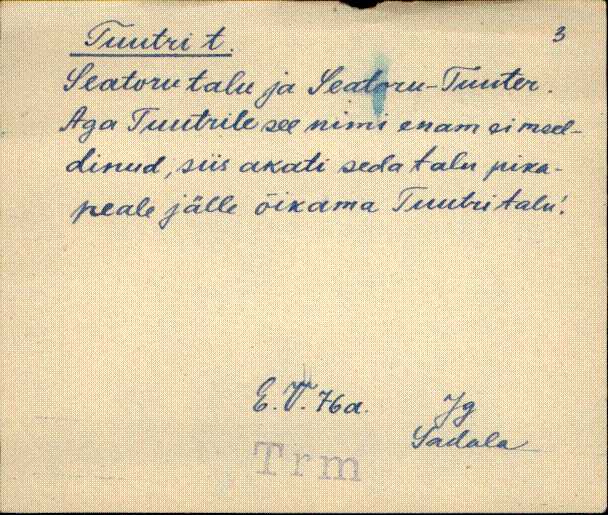 Tuutri t. 3
Seatoru talu ja Seatoru-Tuuter.
Aga Tuutrile see nimi enam ei meel-
dinud, siis akati seda talu pika-
peale jälle õikama Tuutri talu!.
E. V. 76a. Jg
Sadala
Trm